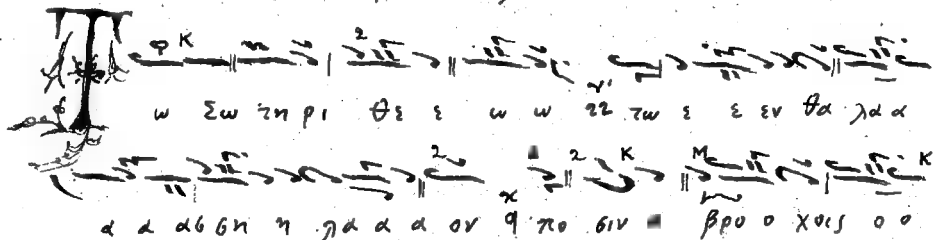 Τω Σω τη ρι θε ε ω ω τω ε ε εν θα λα α
α α ασ ση η λα α α ον πο σιν βρο ο χοις ο ο